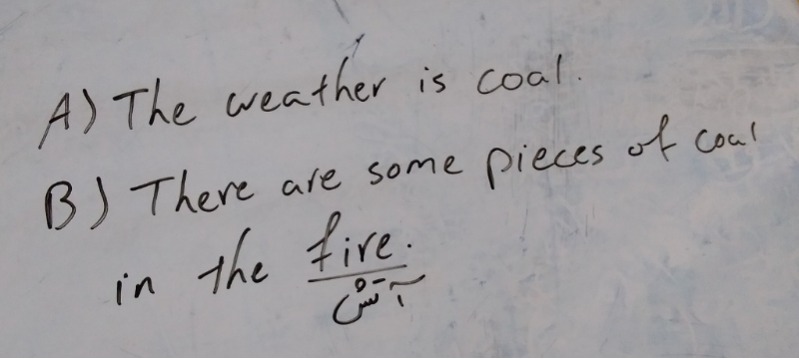 A) The weather is coal.
B) There are some pieces of coal
in the fire.
آتش